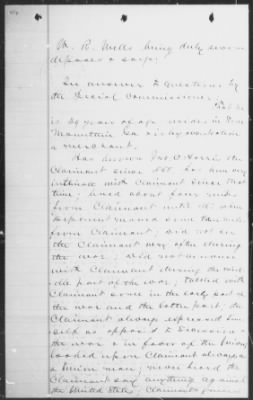 M. R. Mills being duly sworn
deposes & says:
In answer to questions by
the Special Commissioner,
is 39 years of age resides in
Ga & is by occupation
a merchant.
Has known Jno. O. the
Claimant since has been very
intimate with Claimant since that
time; lived about four miles
from Claimant until
deponent moved some ten miles
from Claimant; did not see
the Claimant very often during
the war; did not converse
with Claimant during the mid
dle part of the war; talked with
Claimant some in the early part of
the war and the latter part; the
Claimant always expressed him
self as opposed to Secession &
the war & in favor of the Union,
looked upon Claimant always as
a Union man; never heard the
Claimant say anything against
the United States; Claimant's